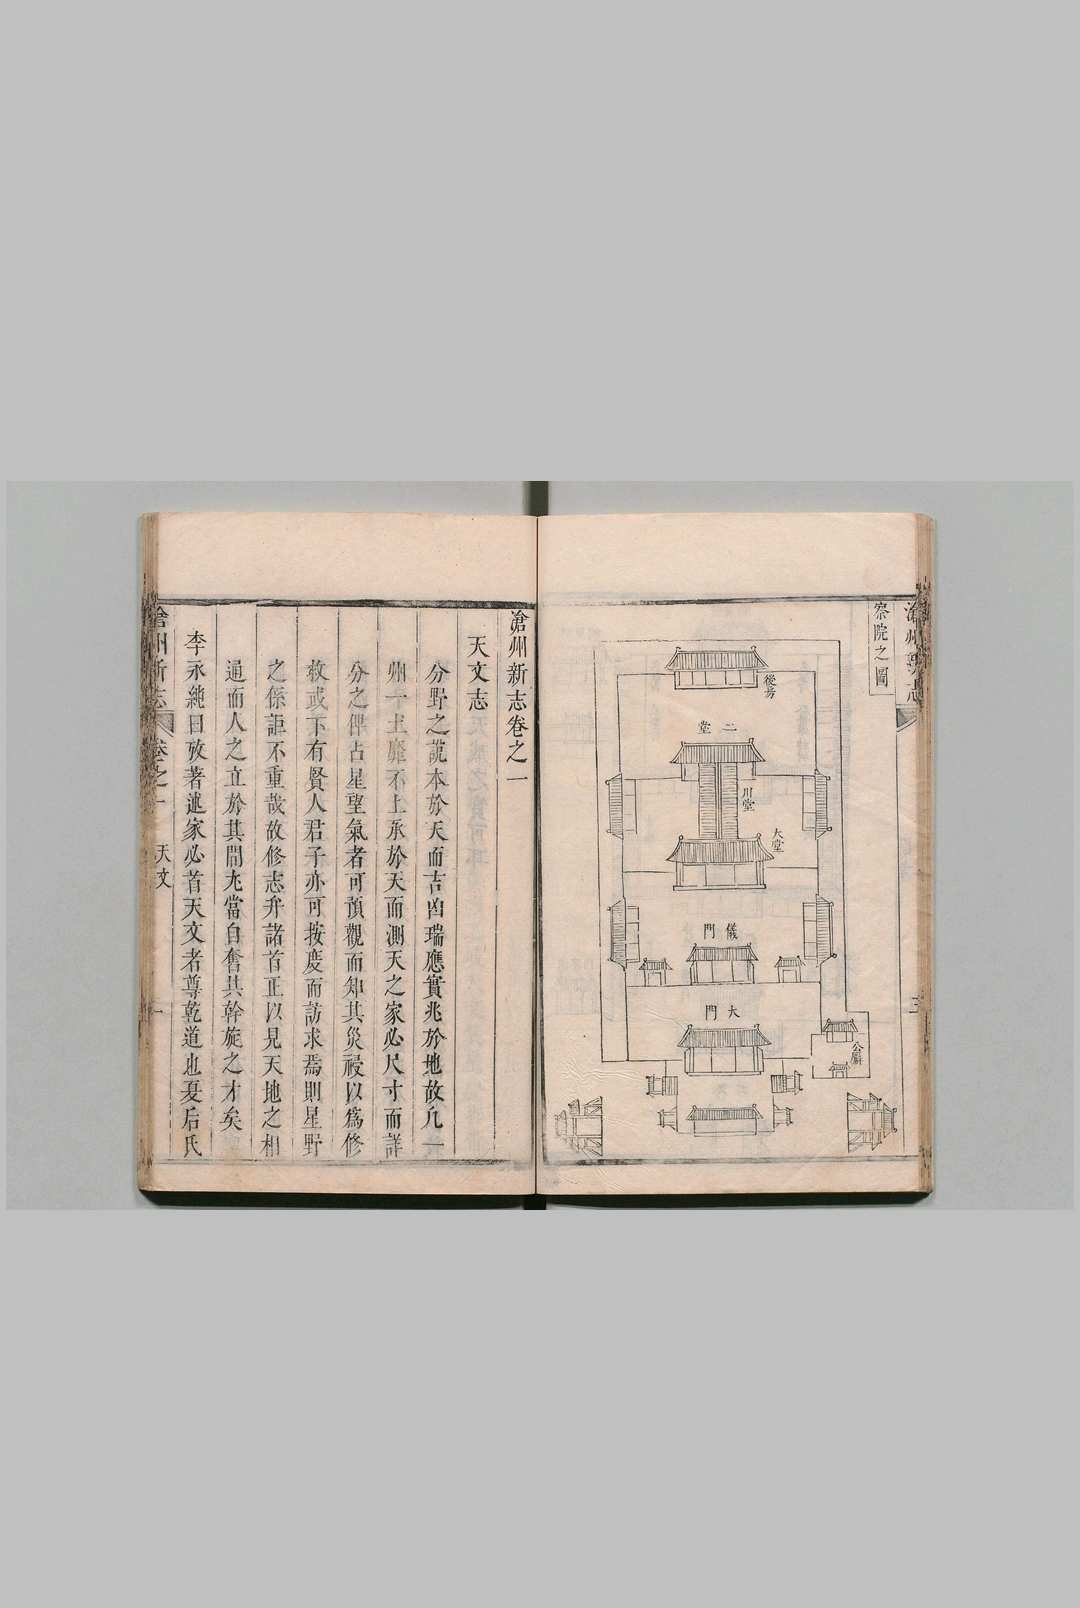 滄州新志
察院之圖
後房
二堂
川堂
大堂
儀門
大門
公廨
三
滄州新志卷之一
天文志
分野之說本於天而吉凶瑞應實兆於地故凡一
州一土靡不上承於天而測天之家必尺寸而詳
分之俾占星望氣者可預觀而知其災祲以為修
救或下有賢人君子亦可按度而訪求焉則星野
之係詎不重哉故修志弁諸首正以見天地之相
通而人之立於其間尤當自奮其幹旋之才矣
李永純曰攷著述家必首天文者尊乾道也夏后氏
滄州新志
卷之一
天文
一